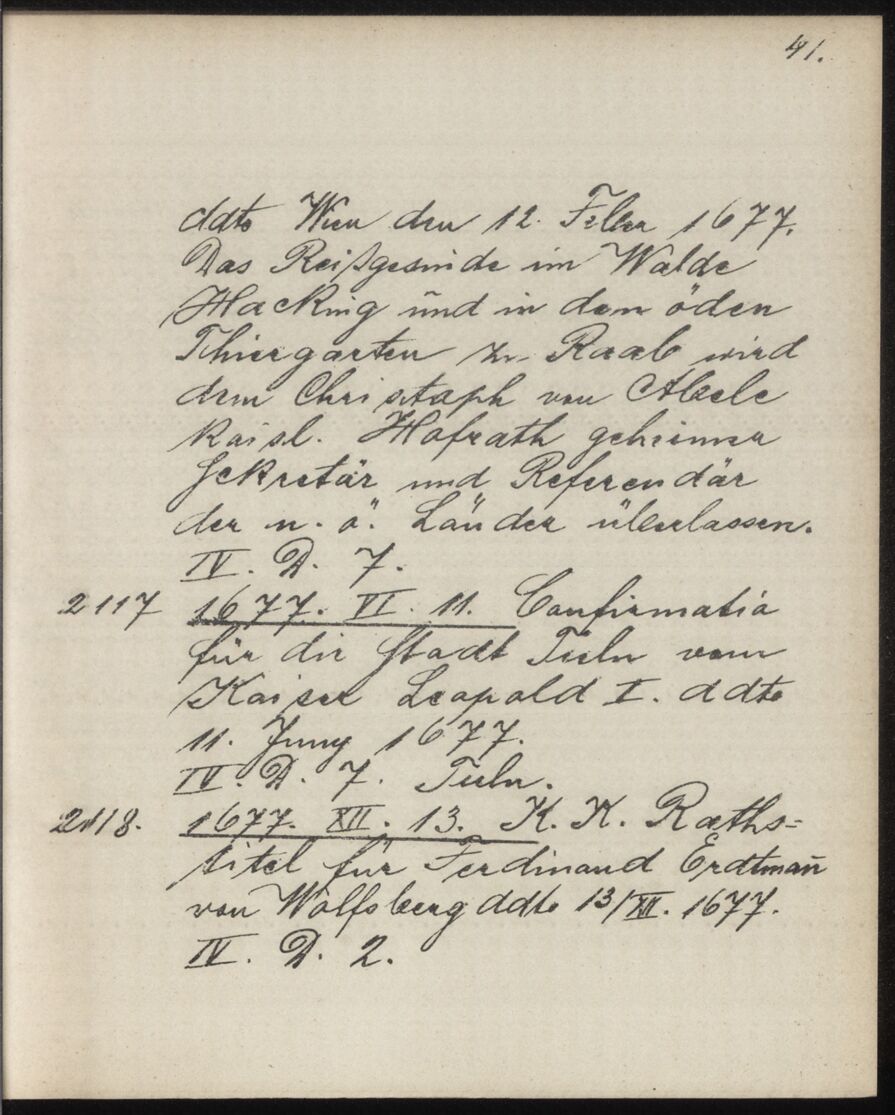 41.
ddto Wien den 12. Feber 1677.
Das Reißgesinde im Walde
Hacking und in dem öden
Thiergarten zu Raab wird
dem Christoph von Abele
kaisl. Hofrath geheimer
Sekretär und Referendär
der n. ö. Länder überlassen.
IV. D. 7.
2117 1677. VI. 11. Confirmatio
für die Stadt Tuln vom
Kaiser Leopold I. ddto
11. Juny 1677.
IV. D. 7. Tuln.
2118. 1677. XII. 13. K. K. Raths-
titel für Ferdinand Erdtman̄
von Wolfsberg ddto 13/XII. 1677.
IV. D. 2.